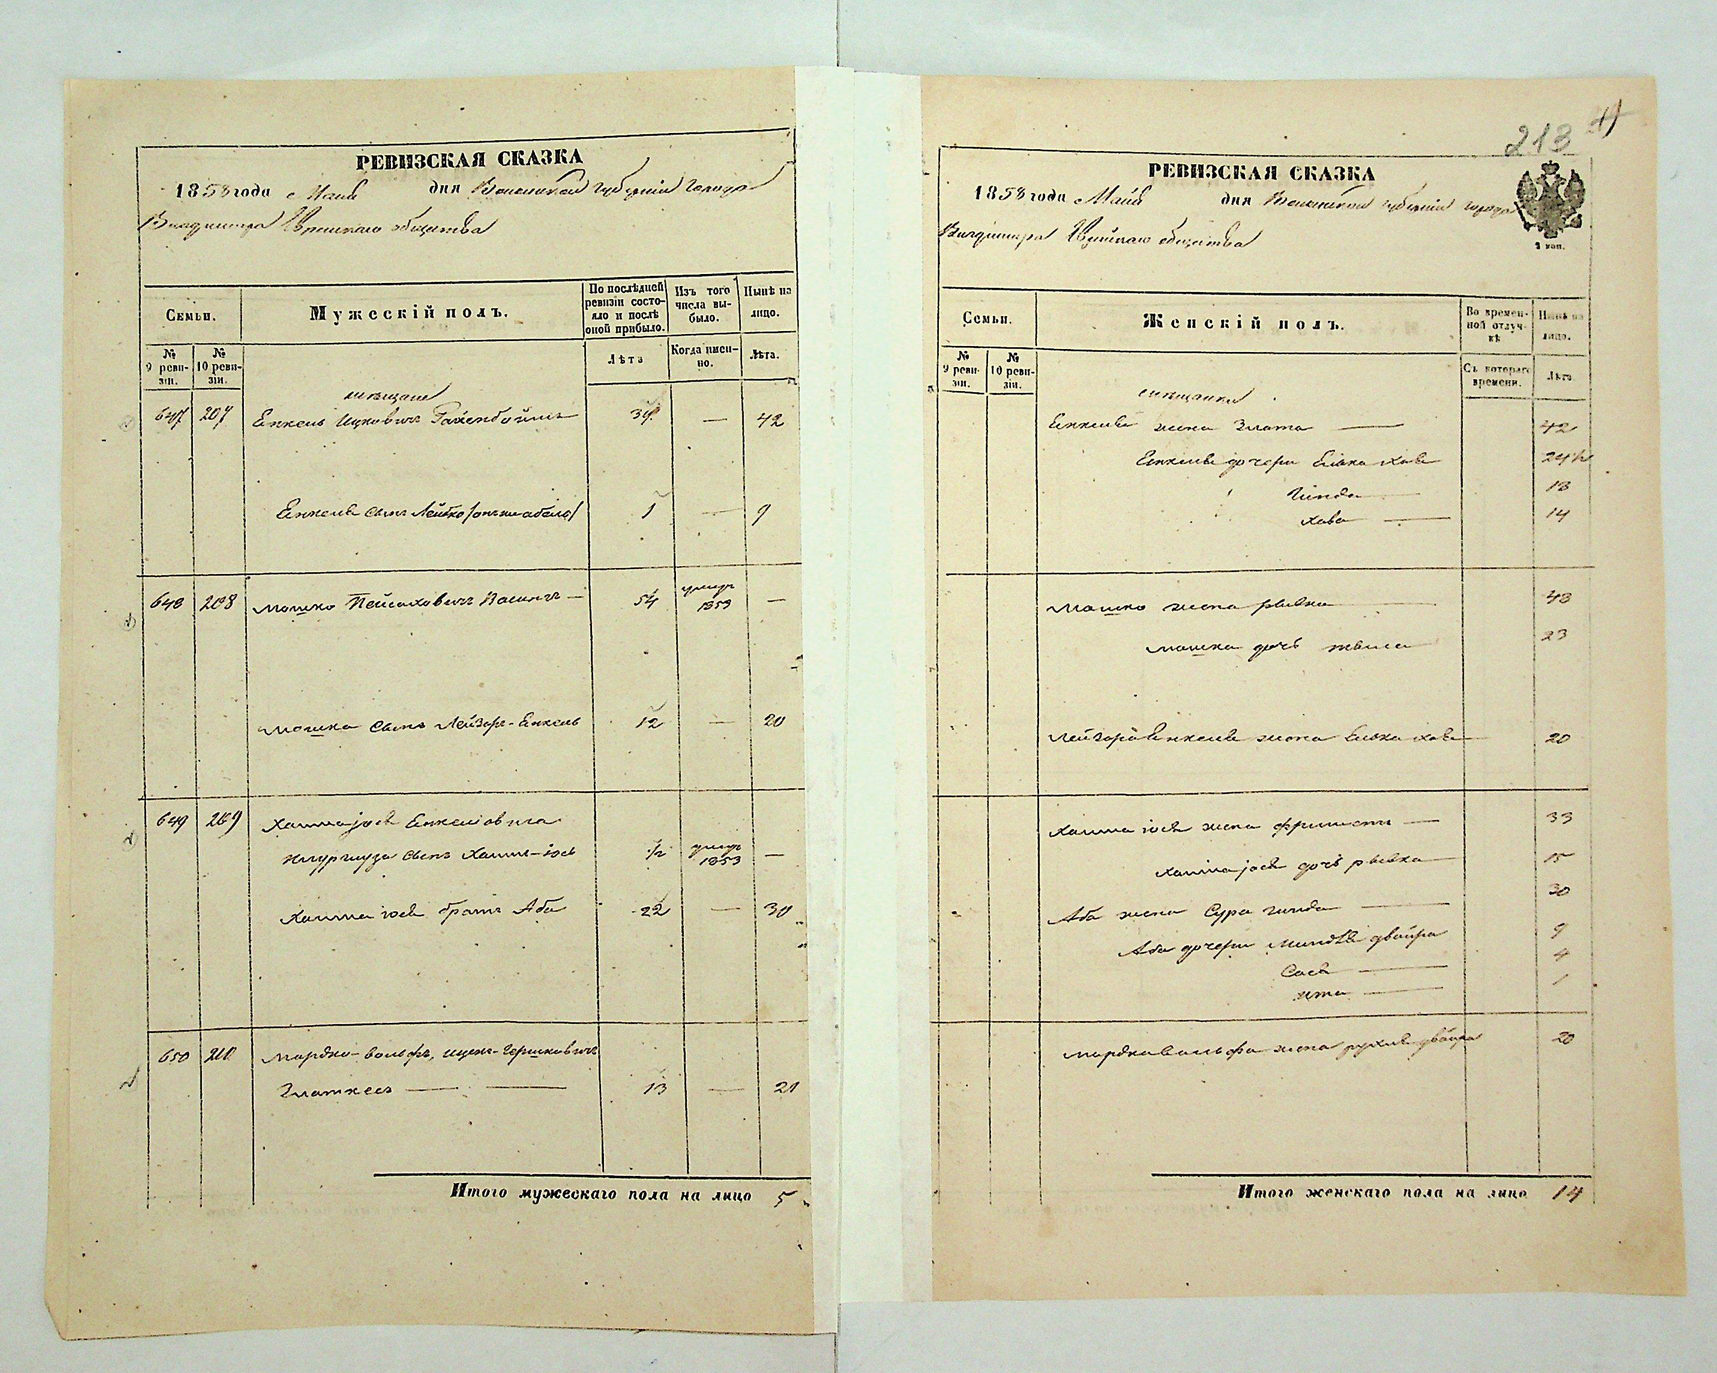 РЕВИЗСКАЯ СКАЗКА
1858 года Маія дня Волынской губерніи города
Владиміра Еврейскаго общества
Семьи.
Мужескій полъ.
По послѣдней ревизіи состояло и послѣ оной прибыло.
Изъ того числа выбыло.
Нынѣ на лицо.
№ 9 ревизіи.
№ 10 ревизіи.
Лѣта
Когда именно.
Лѣта.
мещане
647 207 Енкель Ицковичъ 34 — 42
Енкеля сынъ Лейбко 1 — 9
648 208 Мошко Пейсаховичъ 54 умеръ 1853 —
Мошка сынъ Лейзоръ-Енкель 12 — 20
649 209 Хаима Іося Енкеліовича
сынъ Хаимъ-Іося 1/2 умеръ 1853 —
Хаима Іося братъ Аба 22 — 30
650 210 Мордко-Вольфъ, Ицекъ-Гершковичъ
Златкесъ — — 13 — 21
Итого мужескаго пола на лицо 5
213
РЕВИЗСКАЯ СКАЗКА
1858 года Маія дня Волынской губерніи города
Владиміра Еврейскаго общества
2 коп.
Семьи.
Женскій полъ.
Во временной отлучкѣ
Нынѣ на лицо.
№ 9 ревизіи.
№ 10 ревизіи.
Съ котораго времени.
Лѣта
мещанки
Енкеля жена Злата — 42
Енкеля дочери Елька Хая 24
Гинда — 18
Хава — 14
Мошко жена Рывка — 43
Мошка дочь 23
Лейзора Енкеля жена Елька Хая 20
Хаима Іося жена — 33
Хаима Іося дочь Рывка 15
Аба жена Сура Гинда — 30
Аба дочери Миндля Двойра 9
Сося — 4
Ита — 1
Мордка Вольфа жена Рухля Двойра 20
Итого женскаго пола на лицо 14